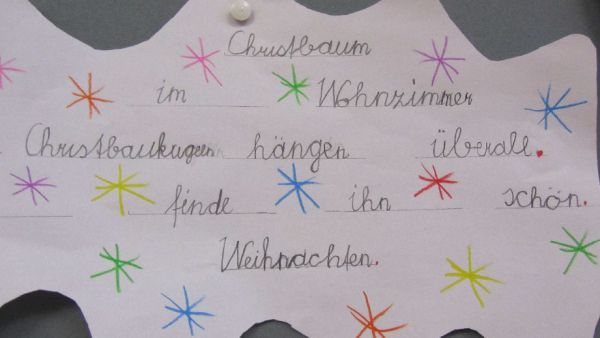 Christbaum
im Wohnzimmer
Christbaukugeln hängen überall.
finde ihn schön.
Weihnachten.